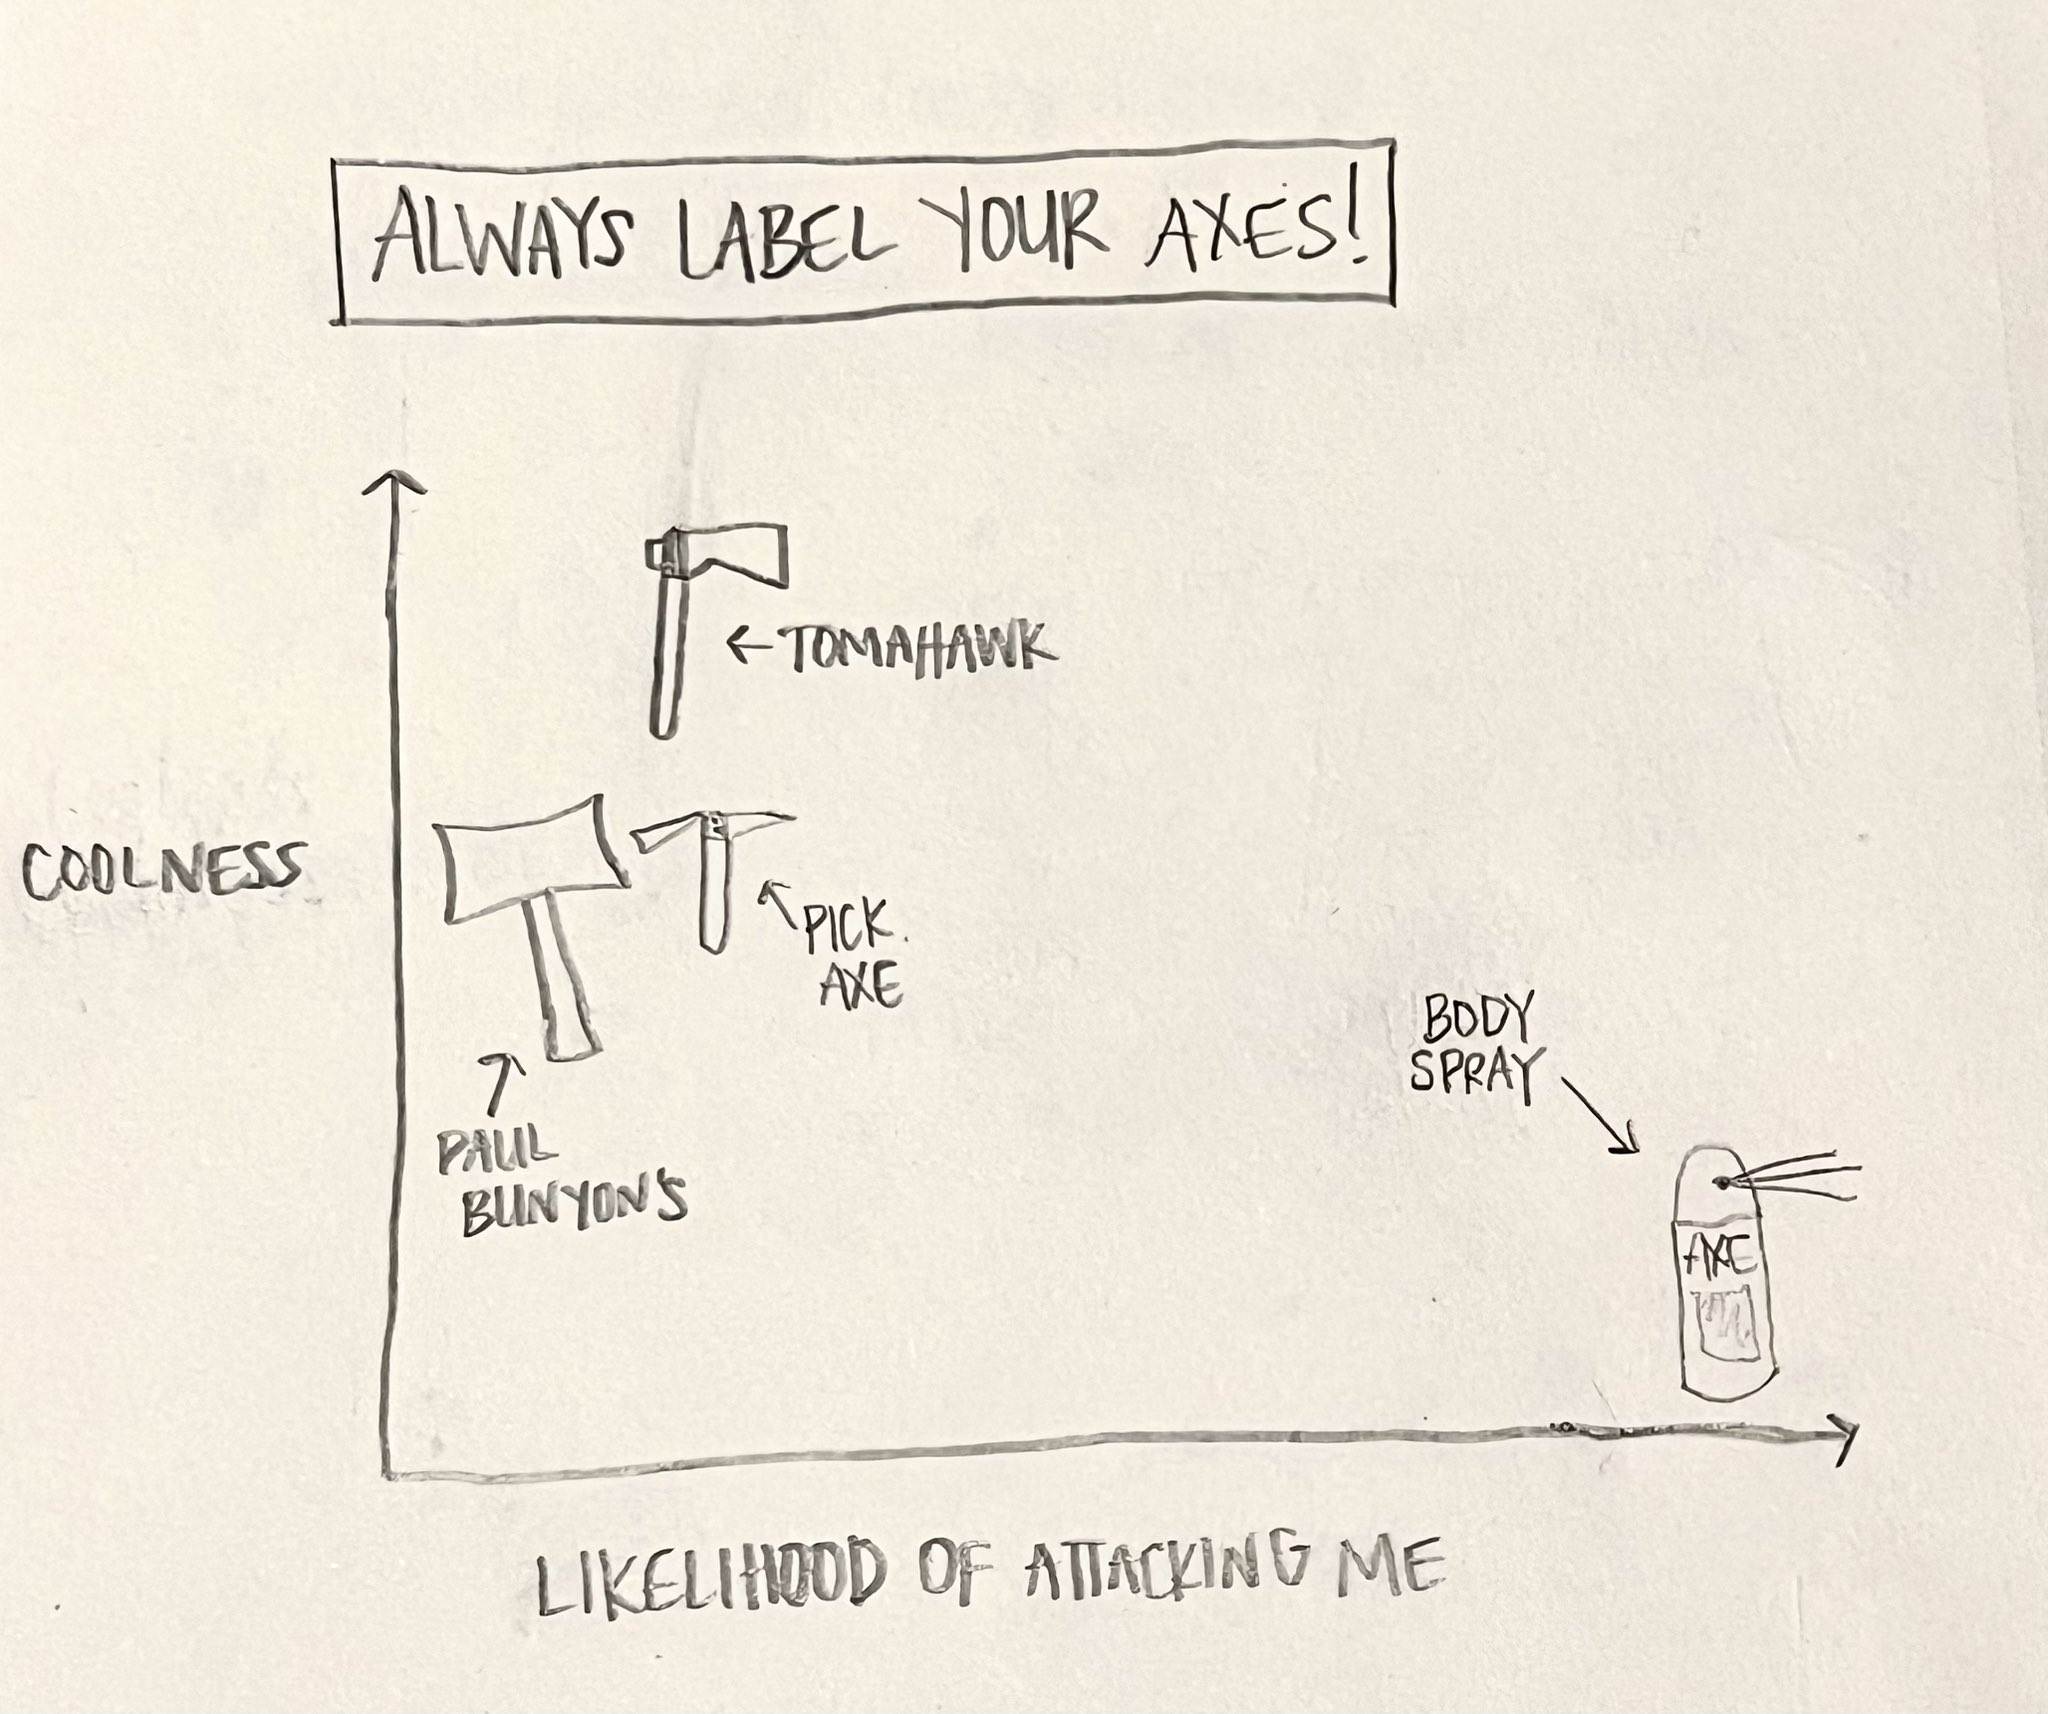 ALWAYS LABEL YOUR AXES!
← TOMAHAWK
COOLNESS
PICK
AXE
PAUL
BUNYON'S
BODY
SPRAY
AXE
LIKELIHOOD OF ATTACKING ME